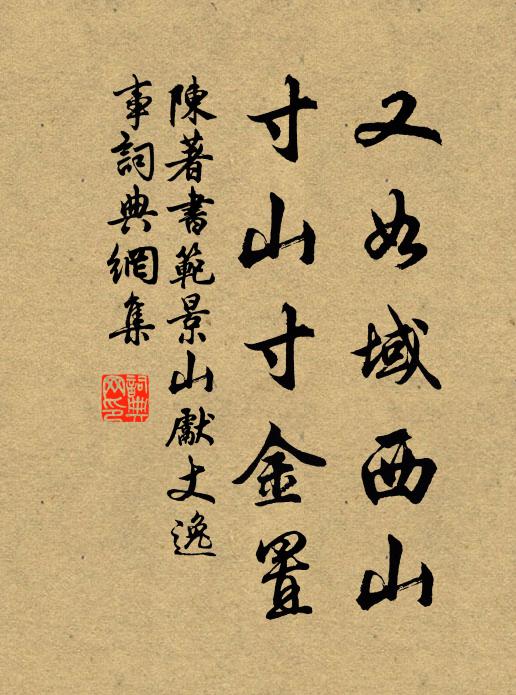 又如域西山
寸山寸金置
陳著書範景山獻丈逸
事詞典網集
詞典網印